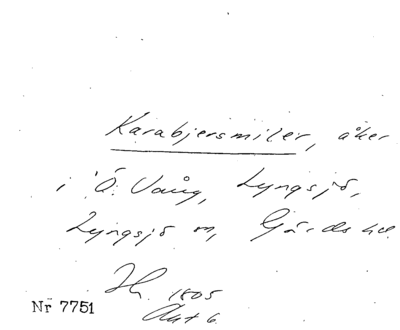 Karabjersmiler, åker
i Ö. Vång, Lyngsjö,
Lyngsjö sn, Gärds hd.
1805
Akt 6.
Nr 7751